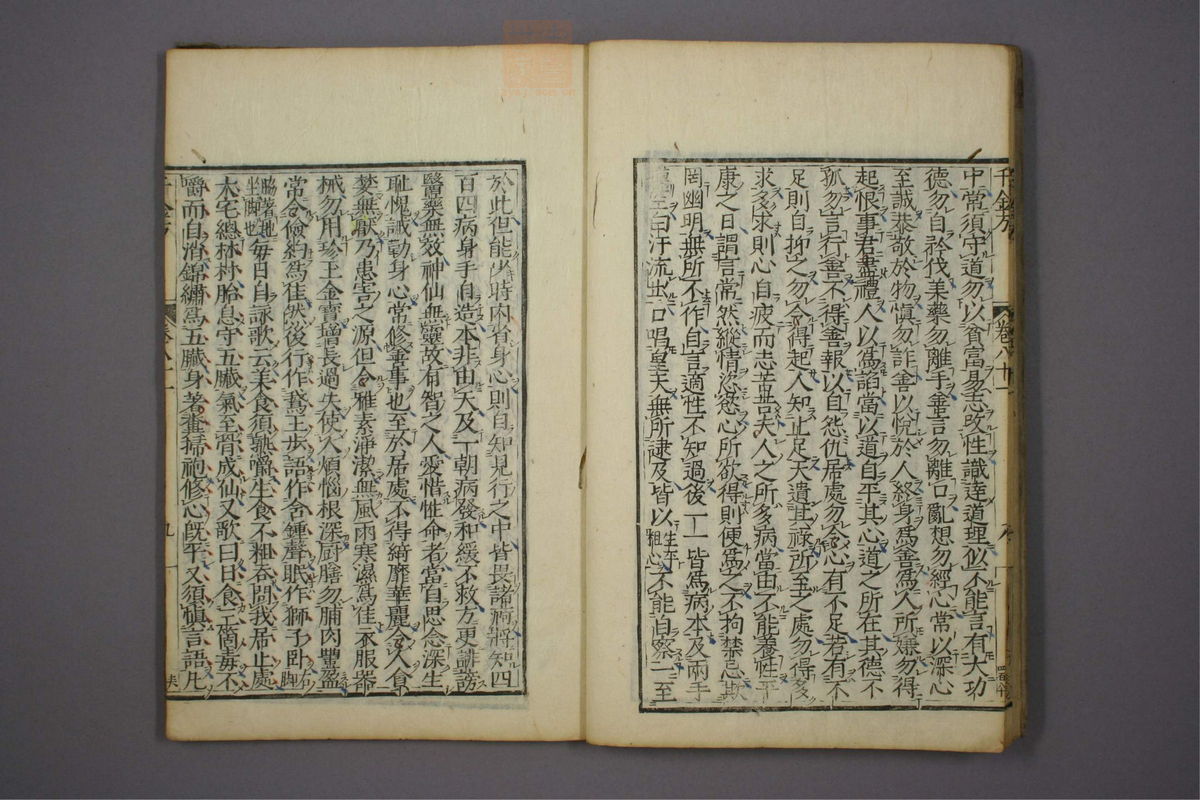 中常須守道勿以貧富易志改性識達道理似不能言有大功
德勿自矜伐美藥勿離手善言勿離口亂想勿經心常以深心
至誠恭敬於物慎勿詐善以悅於人終身爲善爲人所嫌勿得
起恨事君盡禮人以爲諂當以道自平其心道之所在其德不
孤勿言行善不得善報以自怨仇居處勿令心有不足若有不
足則自抑之勿令得起人知止足天遺其祿所至之處勿得多
求多求則心自疲而志苦若夫人之所多病當由不能養性平
康之日謂言常然縱情恣慾心所欲得則便爲之不拘禁忌欺
罔幽明無所不作自言適性不知過後一一皆爲病本及兩手
摸空白汗流出口唱皇天無所逮及皆以生平粗心不能自察一至
於此但能少時内省身心則自知見行之中皆畏諸痾將知四
百四病身手自造本非由天及一朝病發和緩不救方更誹謗
醫藥無效神仙無靈故有智之人愛惜性命者當自思念深生
耻愧誡勒身心常修善事也至於居處不得綺靡華麗令人貪
婪無厭乃患害之源但令雅素淨潔無風雨寒濕爲佳衣服器
械勿用珍玉金寶增長過失使人煩惱根深厨膳勿脯肉豐盈
常令儉約爲佳然後行作鵞王步語作含鍾聲眠作獅子卧右䐐
脇著地坐脚也每日自詠歌云美食須熟嚼生食不粗吞問我居止處
大宅總林村胎息守五臟氣至骨成仙又歌曰日食三箇毒不
嚼而自消錦繡爲五臟身著糞掃袍修心旣平又須愼言語凡
千金方
卷八十一
九